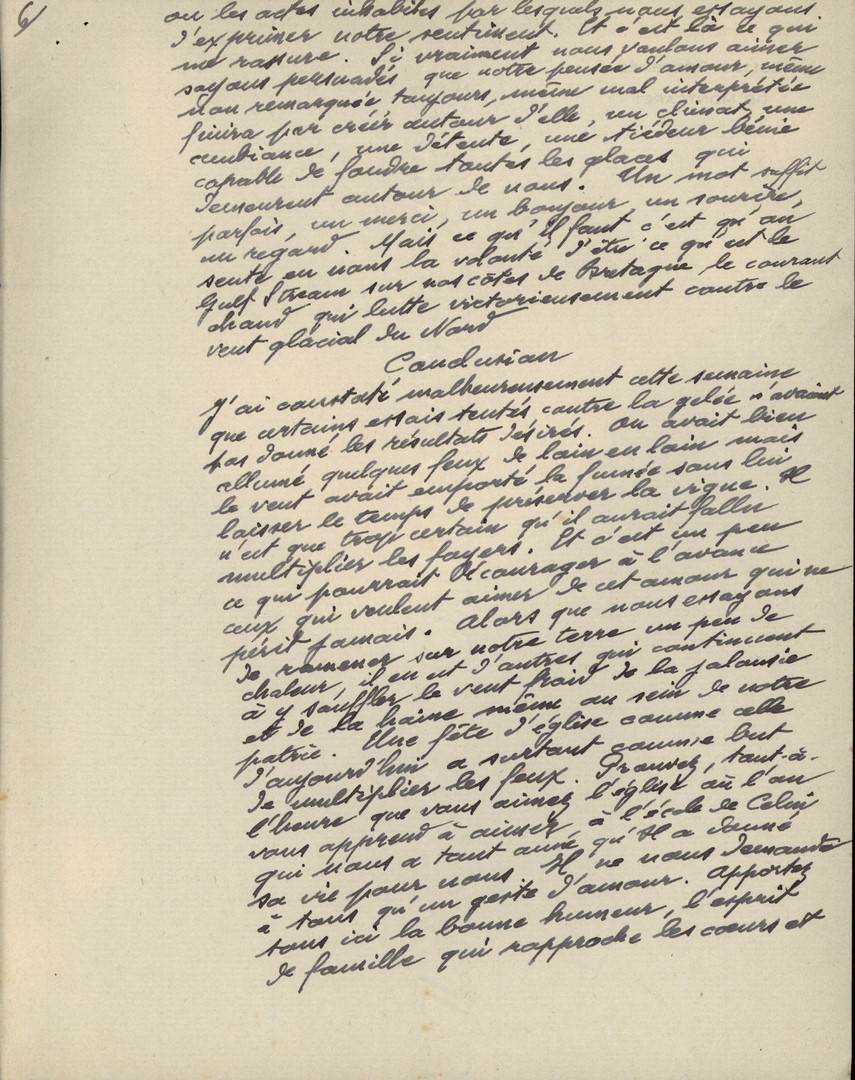 6/
ou les actes inhabiles par lesquels nous essayons
d'exprimer notre sentiment. Et c'est là ce qui
me rassure. Si vraiment nous voulons aimer
soyons persuadés que notre pensée d'amour, même
non remarquée toujours, même mal interprétée
finira par créer autour d'elle, un climat, une
ambiance, une détente, une tiédeur bénie
capable de fondre toutes les glaces qui
demeurent autour de nous. Un mot suffit
parfois, un merci, un bonjour, un sourire,
un regard. Mais ce qu'Il faut c'est qu'on
sente en nous la volonté d'être ce qu'est le
Gulf Stream sur nos côtes de Bretagne le courant
chaud qui lutte victorieusement contre le
vent glacial du Nord
Conclusion
J'ai constaté malheureusement cette semaine
que certains essais tentés contre la gelée n'avaient
pas donné les résultats désirés. On avait bien
allumé quelques feux de loin en loin mais
le vent avait emporté la fumée sans lui
laisser le temps de préserver la vigne. Il
n'est que trop certain qu'il aurait fallu
multiplier les foyers. Et c'est un peu
ce qui pourrait décourager à l'avance
ceux qui veulent aimer de cet amour qui ne
périt jamais. Alors que nous essayons
de ramener sur notre terre un peu de
chaleur, il en est d'autres qui continuent
à y souffler le vent froid de la jalousie
et de la haine même au sein de notre
patrie. Une fête d'église comme celle
d'aujourd'hui a surtout comme but
de multiplier les feux. Prouvez, tout-à-
l'heure que vous aimez l'église où l'on
vous apprend à aimer, à l'école de Celui
qui nous a tant aimé qu'Il a donné
sa vie pour nous. Il ne nous demande
à tous qu'un geste d'amour. Apportez
tous ici la bonne humeur, l'esprit
de famille qui rapproche les cœurs et